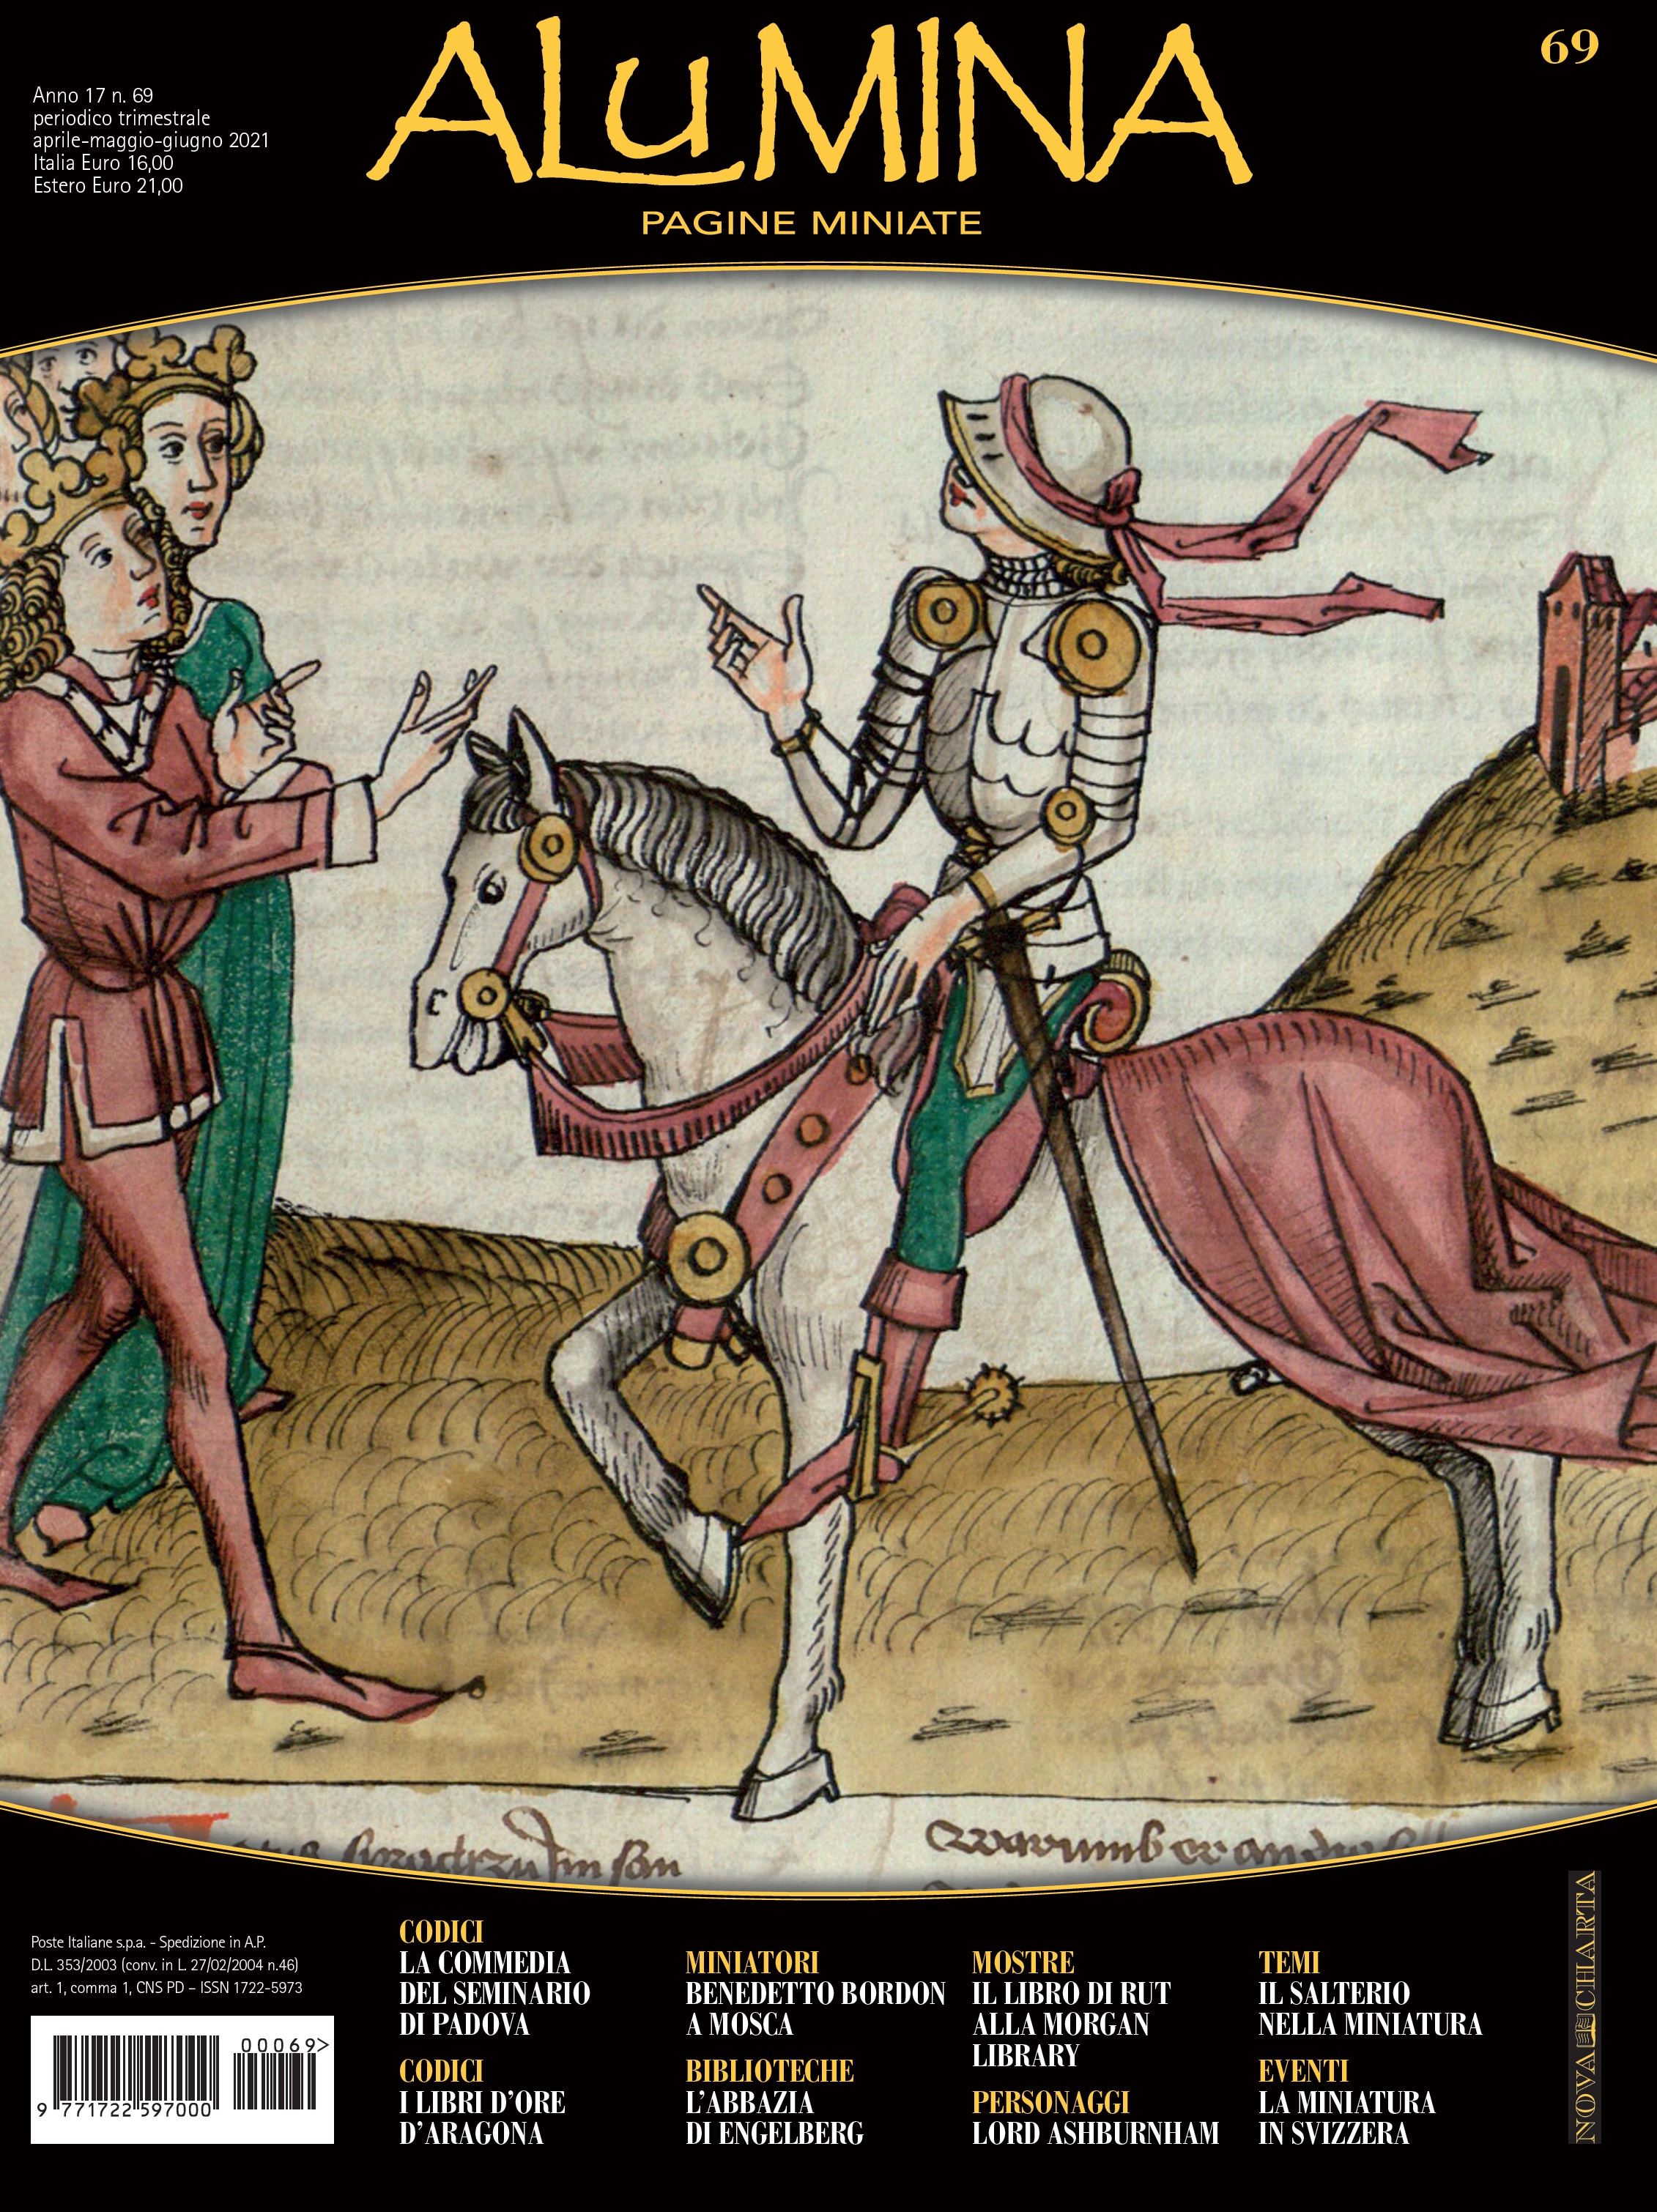 ALuMINA
PAGINE MINIATE
69
Anno 17 n. 69
periodico trimestrale
aprile-maggio-giugno 2021
Italia Euro 16,00
Estero Euro 21,00
Poste Italiane s.p.a. - Spedizione in A.P.
D.L. 353/2003 (conv. in L. 27/02/2004 n.46)
art. 1, comma 1, CNS PD – ISSN 1722-5973
00069>
9 771722 597000
CODICI
LA COMMEDIA
DEL SEMINARIO
DI PADOVA
CODICI
I LIBRI D’ORE
D’ARAGONA
MINIATORI
BENEDETTO BORDON
A MOSCA
BIBLIOTECHE
L’ABBAZIA
DI ENGELBERG
MOSTRE
IL LIBRO DI RUT
ALLA MORGAN
LIBRARY
PERSONAGGI
LORD ASHBURNHAM
TEMI
IL SALTERIO
NELLA MINIATURA
EVENTI
LA MINIATURA
IN SVIZZERA
NOVA CHARTA